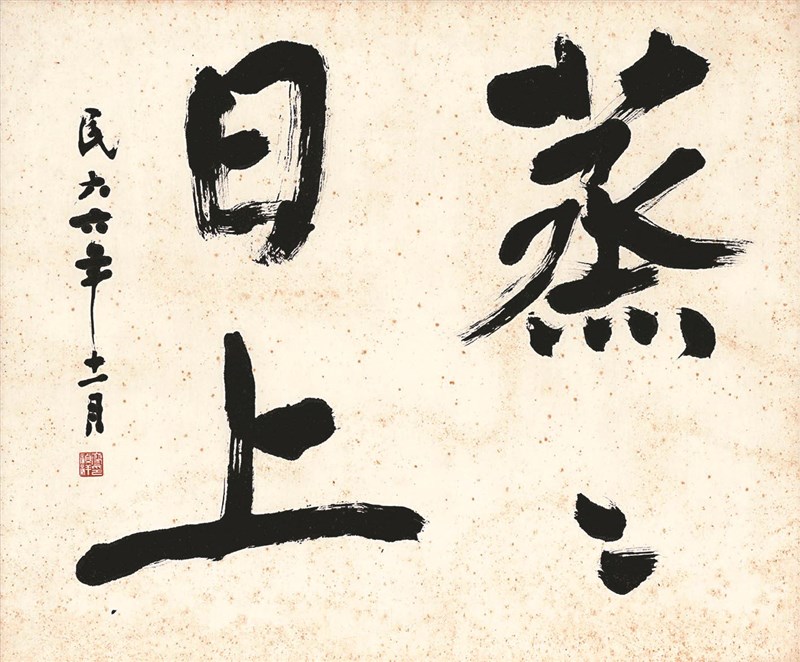 蒸〻
日上
民六六年十一月